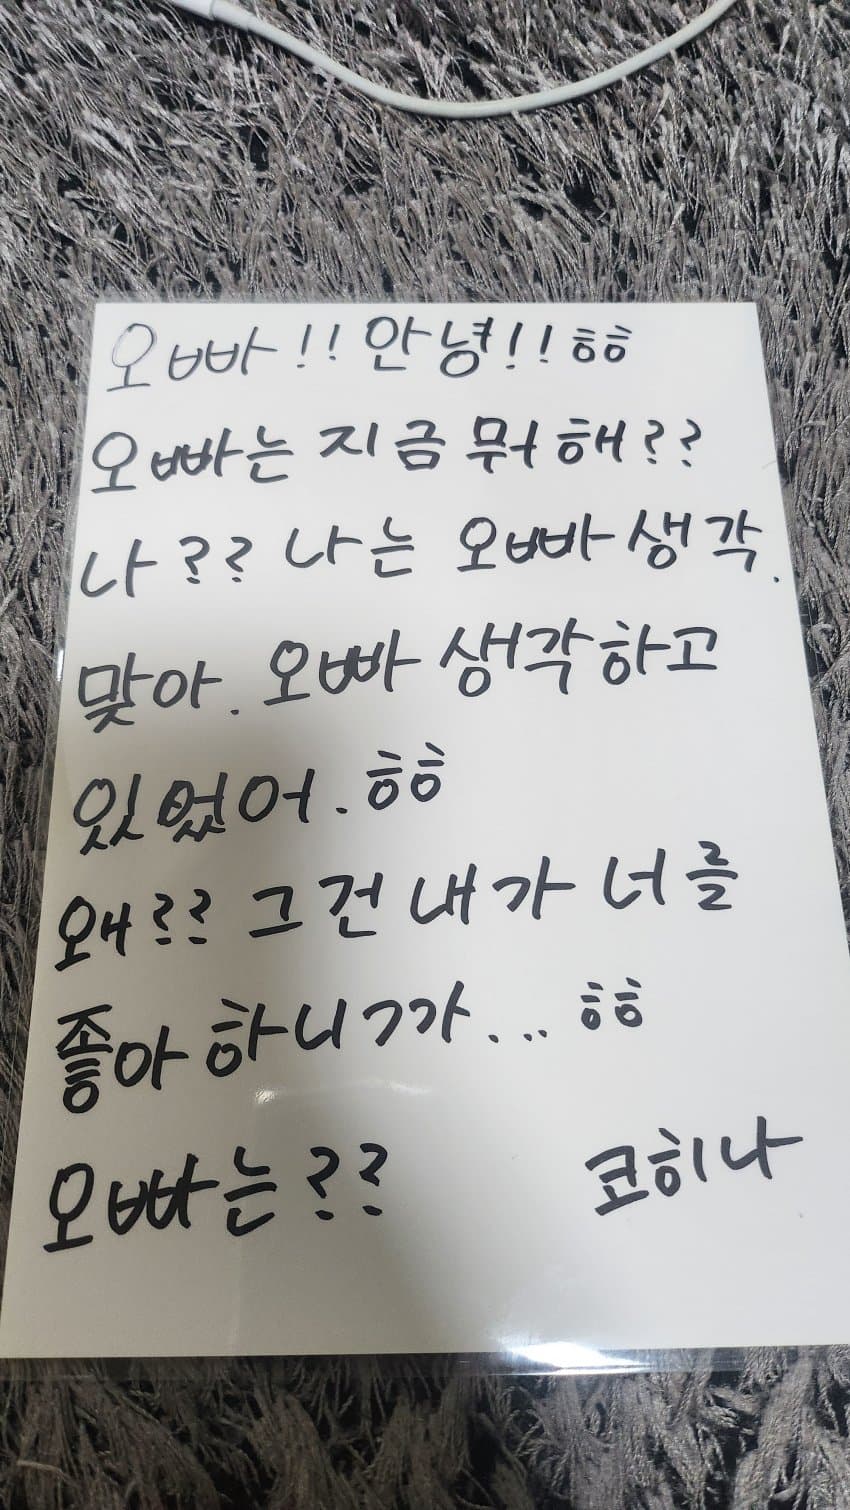 오빠!! 안녕!! ㅎㅎ
오빠는 지금 뭐 해??
나?? 나는 오빠 생각.
맞아. 오빠 생각하고
있었어. ㅎㅎ
왜?? 그건 내가 너를
좋아하니까... ㅎㅎ
오빠는?? 코히나